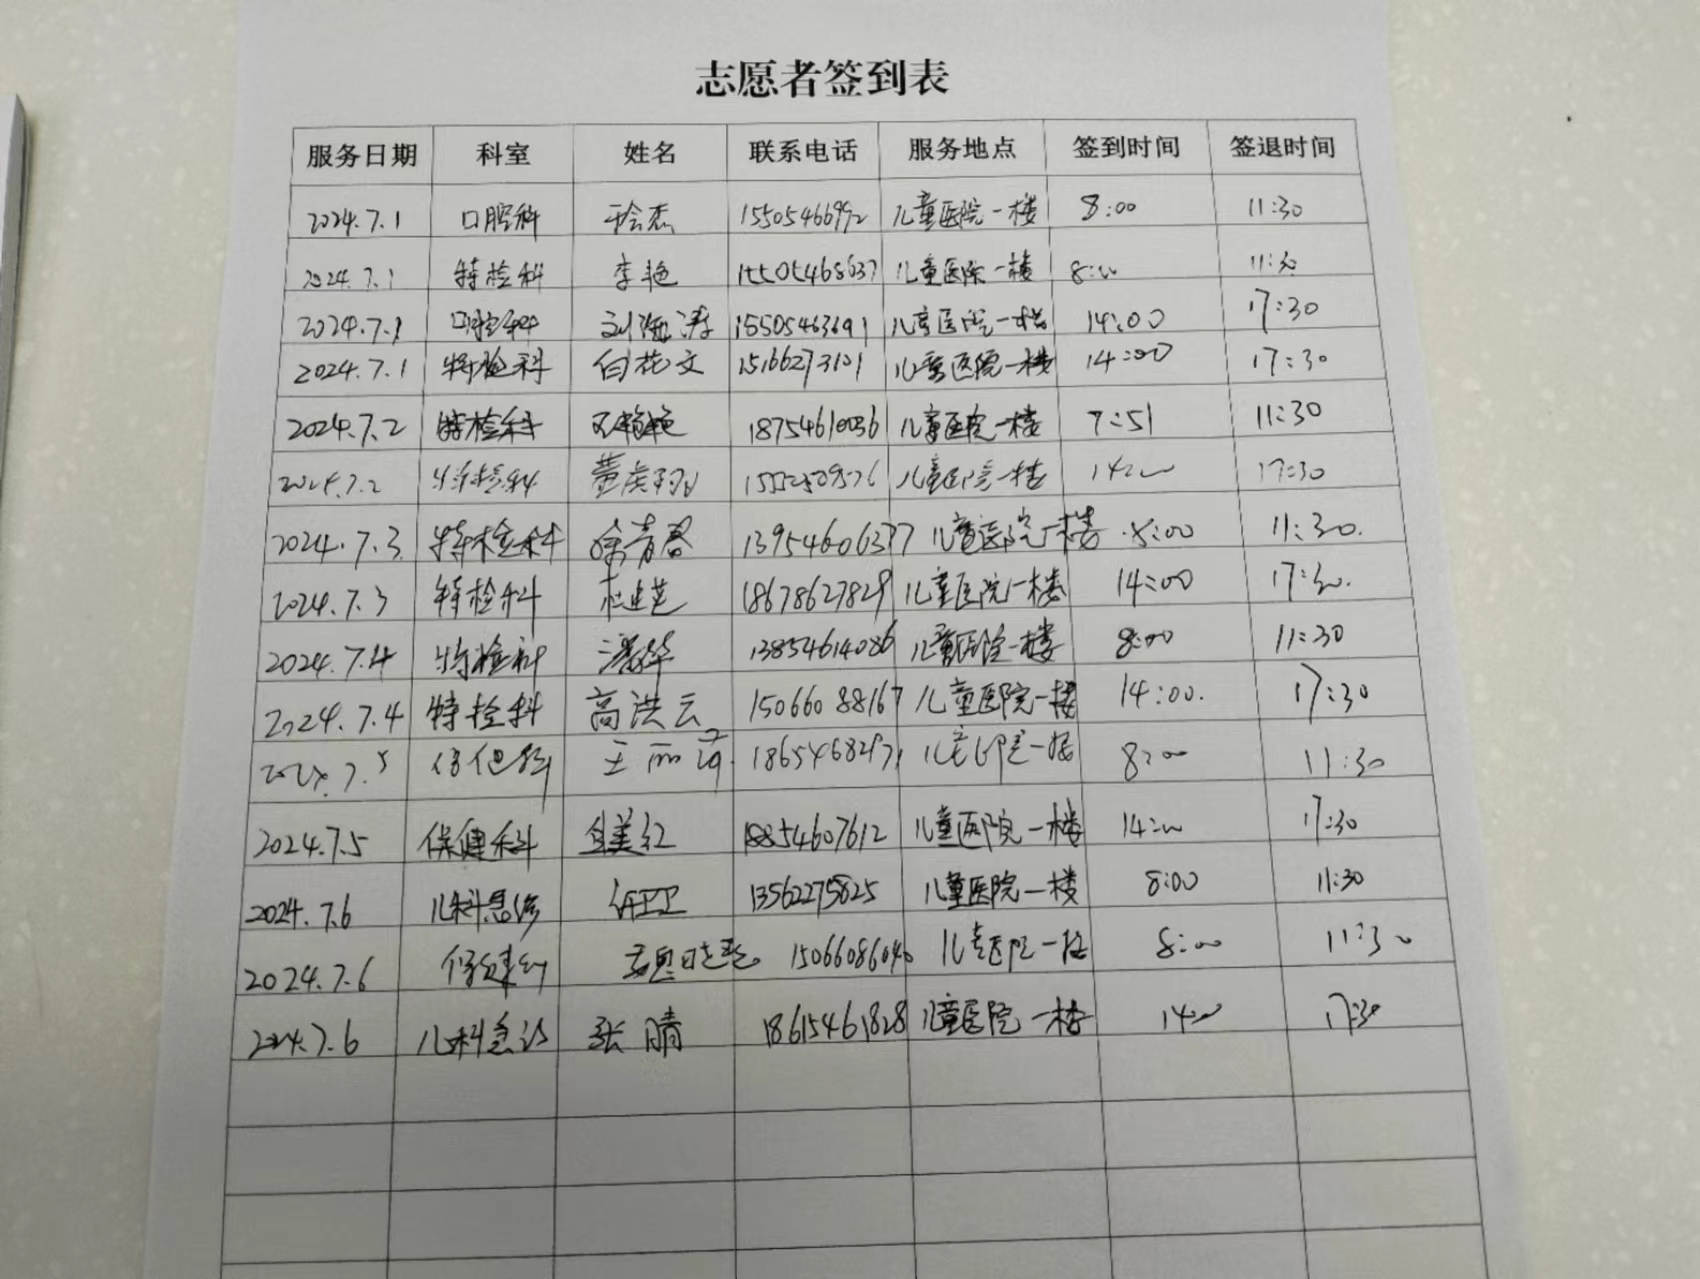 志愿者签到表
服务日期 科室 姓名 联系电话 服务地点 签到时间 签退时间
2024.7.1 口腔科 15505466992 儿童医院一楼 8:00 11:30
2024.7.1 特检科 李艳 15505468637 儿童医院一楼 8:00 11:30
2024.7.1 口腔科 刘海涛 15505463691 儿童医院一楼 14:00 17:30
2024.7.1 特检科 白花文 15166273101 儿童医院一楼 14:00 17:30
2024.7.2 特检科 18754610036 儿童医院一楼 7:51 11:30
2024.7.2 特检科 儿童医院一楼 14:00 17:30
2024.7.3 特检科 徐青春 13954606377 儿童医院一楼 8:00 11:30.
2024.7.3 特检科 18678627829 儿童医院一楼 14:00 17:30.
2024.7.4 特检科 13854614086 儿童医院一楼 8:00 11:30
2024.7.4 特检科 高洪云 15066088167 儿童医院一楼 14:00. 17:30
2024.7.5 保健科 18654682971 儿童医院一楼 8:00 11:30
2024.7.5 保健科 18854607612 儿童医院一楼 14:00 17:30
2024.7.6 儿科急诊 许卫卫 13562275825 儿童医院一楼 8:00 11:30
2024.7.6 保健科 15066086040 儿童医院一楼 8:00 11:30
2024.7.6 儿科急诊 张晴 18615461828 儿童医院一楼 14:00 17:30